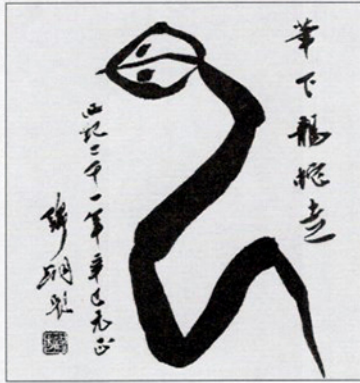 筆下龍蛇走
西紀二千一年辛巳元正